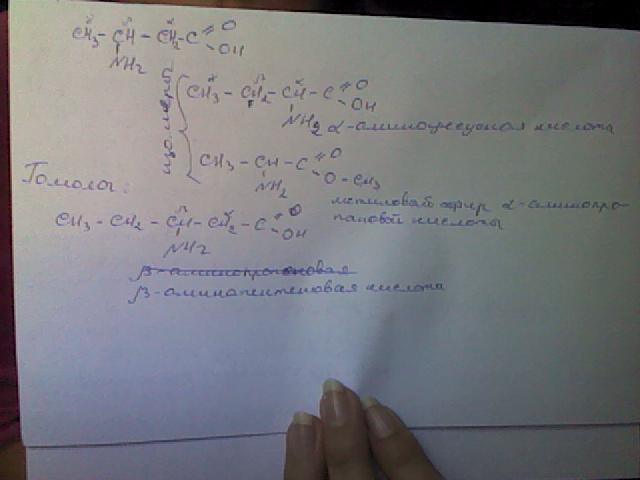 CH₃ – CH – CH₂ – C = O
OH
NH₂
изомеры
CH₃ – CH₂ – CH – C = O
OH
NH₂ α-амино кислота
CH₃ – CH – C = O
O – CH₃
NH₂
метиловый эфир α-аминопро-
пановой кислоты
Гомолог:
CH₃ – CH₂ – CH – CH₂ – C = O
OH
NH₂
β-аминопропановая
β-аминопентановая кислота